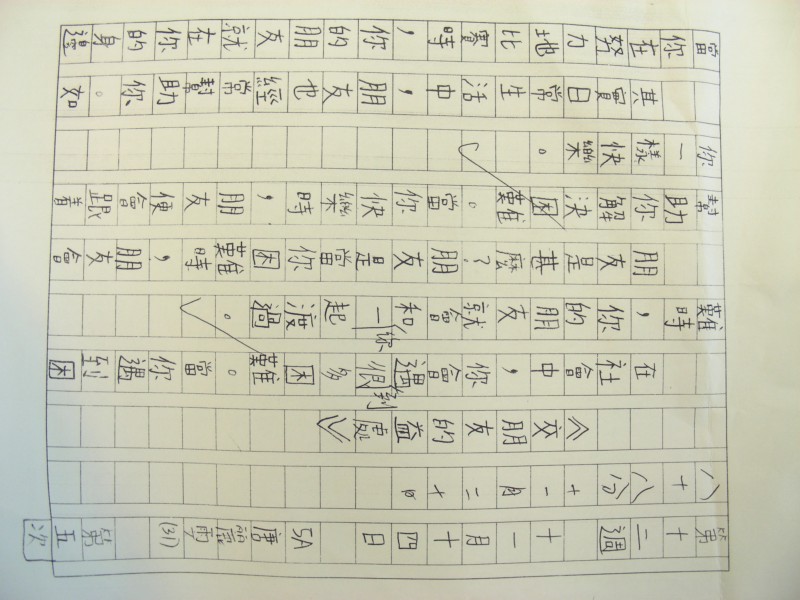 第十二週 十一月十四日 5A 唐麗 (31) 第五次
八十八分 十一月二十日
《交朋友的益處》
在社會中，你會遇到很多困難。當你遇到困
難時，你的朋友就會和你一起渡過。
朋友是甚麼？朋友是當你困難時，朋友會
幫助你解決困難。當你快樂時，朋友便會跟着
你一樣快樂。
其實日常生活中，朋友也經常幫助你。如
當你在努力地比賽時，你的朋友就在你的身邊